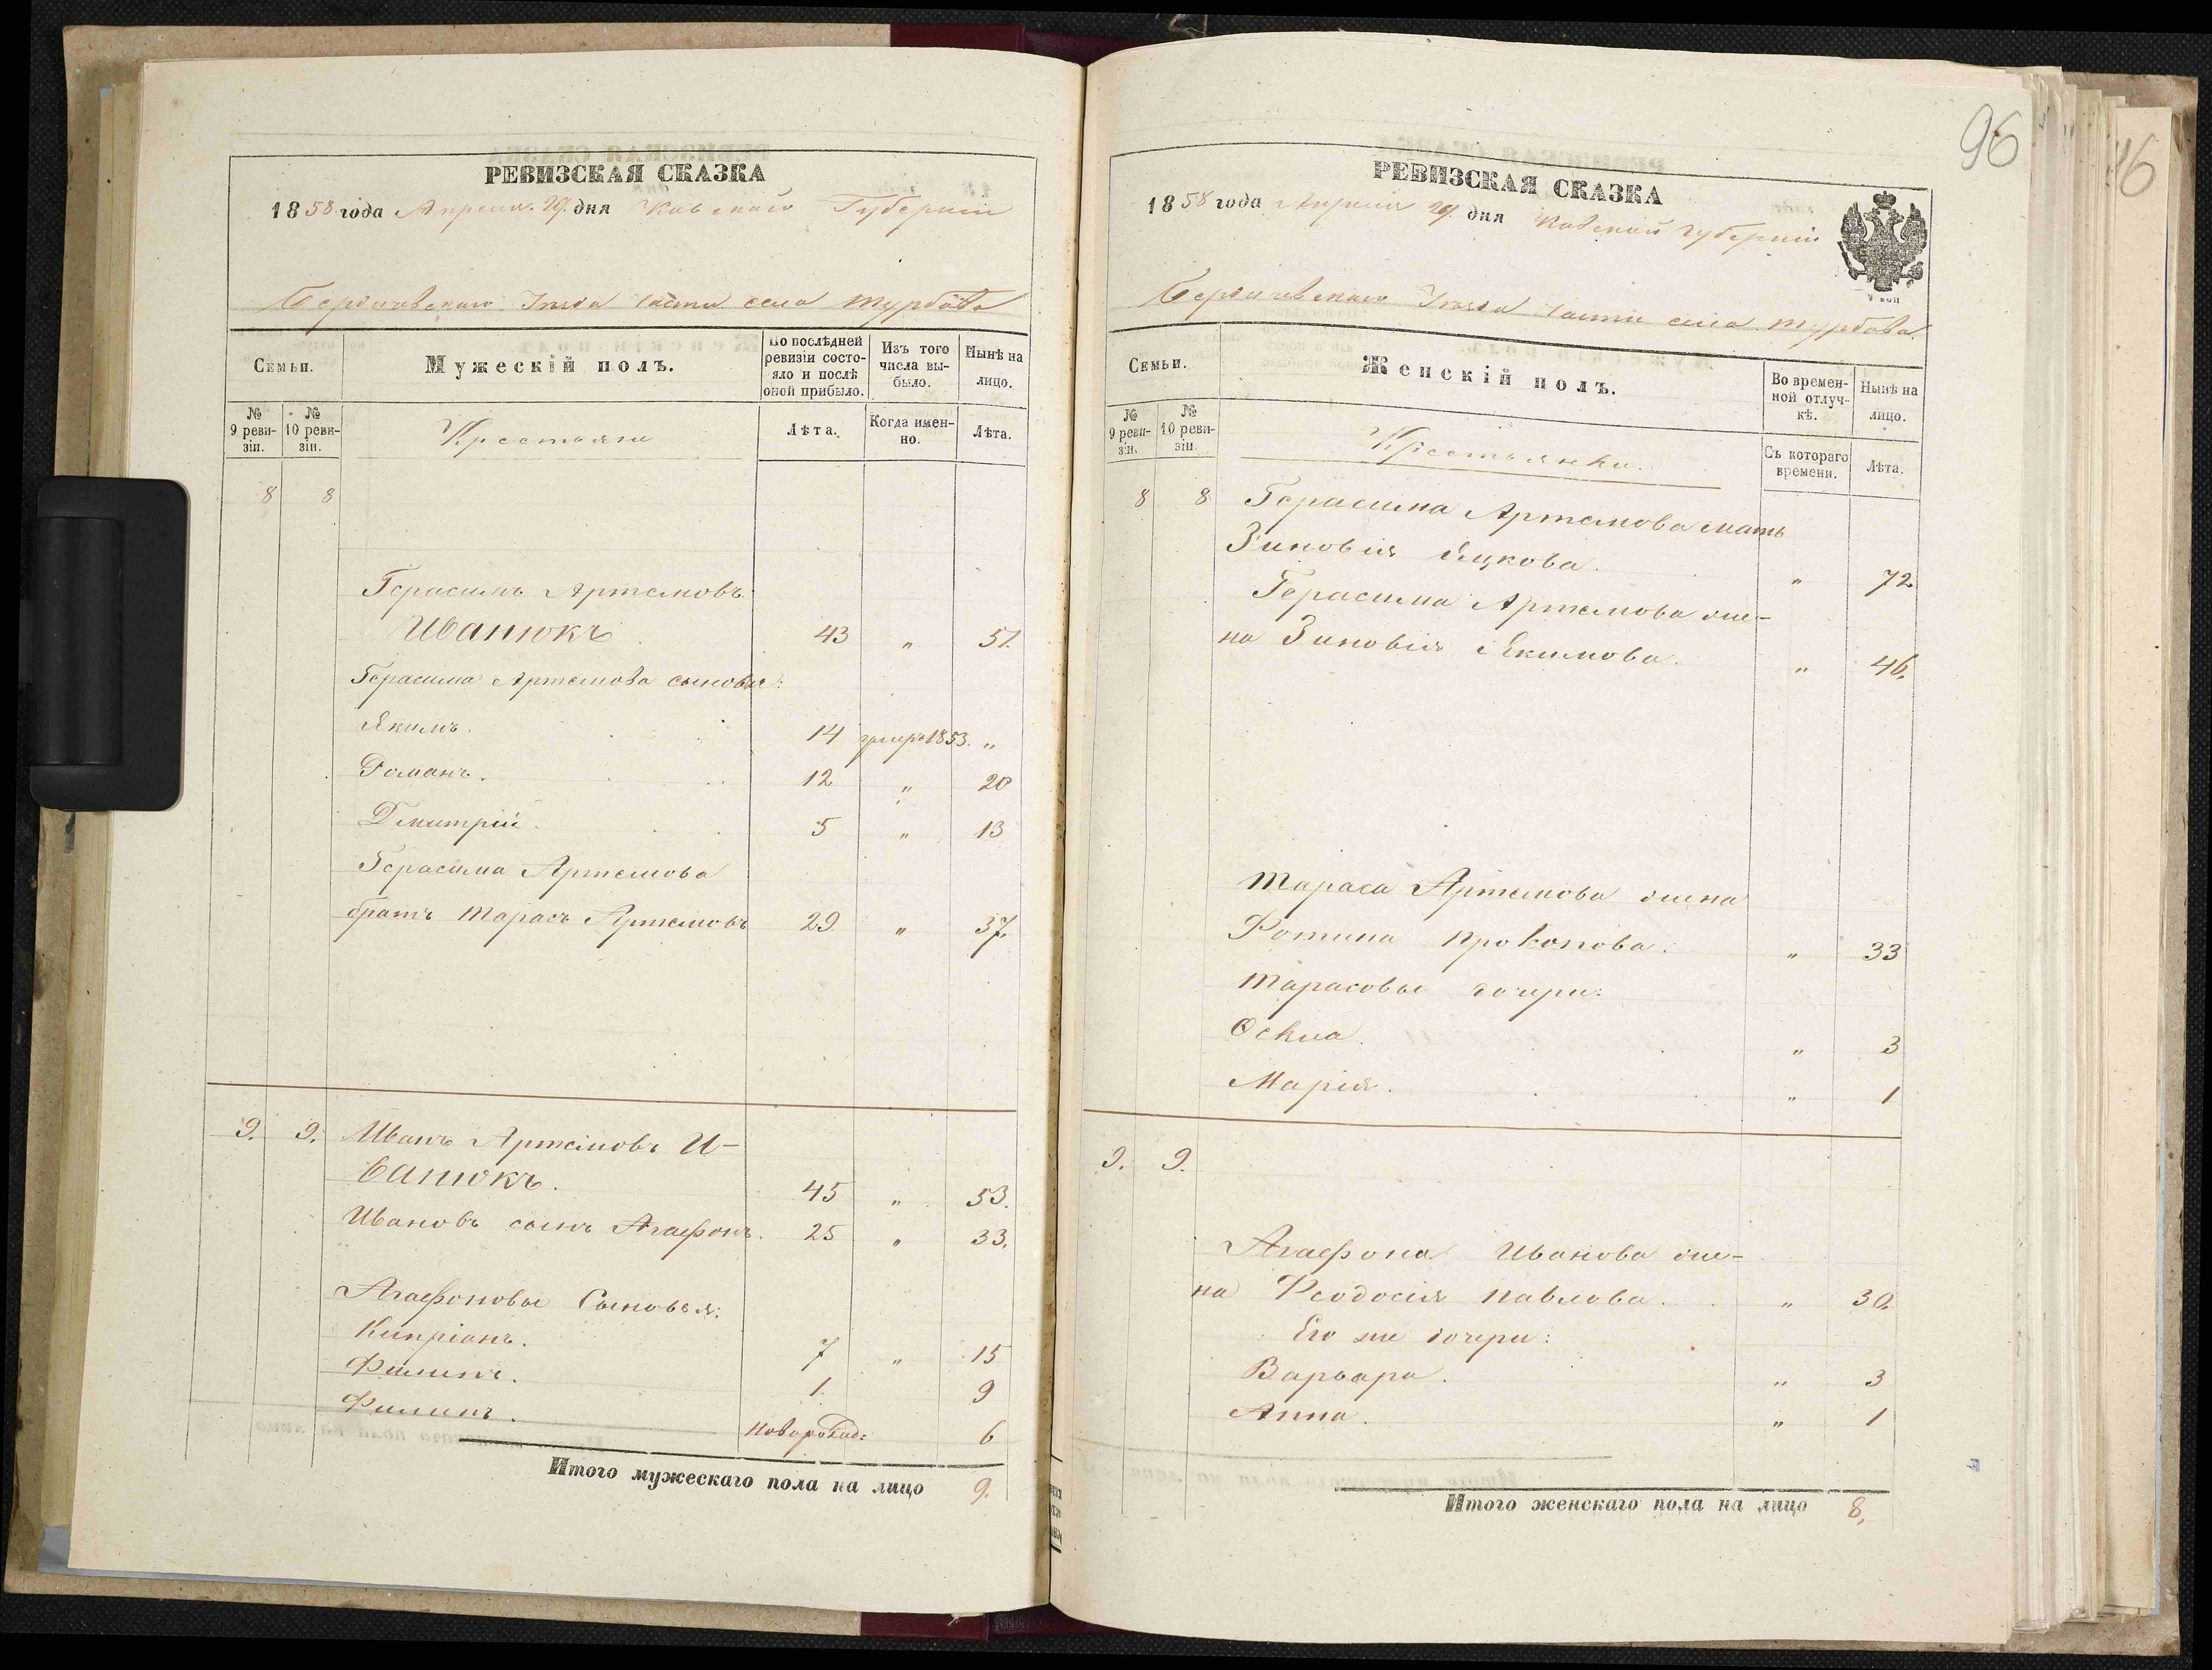 96
16
РЕВИЗСКАЯ СКАЗКА
1858 года Апреля 29 дня Кіевской Губерніи
Бердичевскаго Уезда Части села Турбова
Семьи.
Мужескій полъ.
По послѣдней ревизіи состояло и послѣ оной прибыло.
Изъ того числа выбыло.
Нынѣ на лицо.
№ 9 ревизіи.
№ 10 ревизіи.
Крестьяне
Лѣта.
Когда именно.
Лѣта.
8 8
Герасимъ Артемовъ
Иванюкъ 43 " 51.
Герасима Артемова сыновья:
Якимъ. 14 умеръ 1853. "
Романъ. 12 " 20
Дмитрій. 5 " 13
Герасима Артемова
братъ Тарасъ Артемовъ 29 " 37.
9. 9. Иванъ Артемовъ И-
ванюкъ. 45 " 53.
Ивановъ сынъ Агафонъ. 25 " 33.
Агафоновы Сыновья:
Кипріанъ. 7 " 15
Филипъ. 1. 9
Филипъ. новорожд: 6
Итого мужескаго пола на лицо 9.
РЕВИЗСКАЯ СКАЗКА
1858 года Апреля 29 дня Кіевской Губерніи
Бердичевскаго Уезда Части села Турбова
Семьи.
Женскій полъ.
Во временной отлучкѣ.
Нынѣ на лицо.
№ 9 ревизіи.
№ 10 ревизіи.
Крестьянки.
Съ котораго времени.
Лѣта.
8 8 Герасима Артемова мать
Зиновія Яцкова. " 72
Герасима Артемова же-
на Зиновія Якимова. " 46.
Тараса Артемова жена
Фотина Прокопова. " 33
Тарасовы дочери:
Оскиа. " 3
Марія. " 1
9. 9.
Агафона Иванова же-
на Феодосія Павлова. " 30.
Его же дочери:
Варвара. " 3
Анна. " 1
Итого женскаго пола на лицо 8.